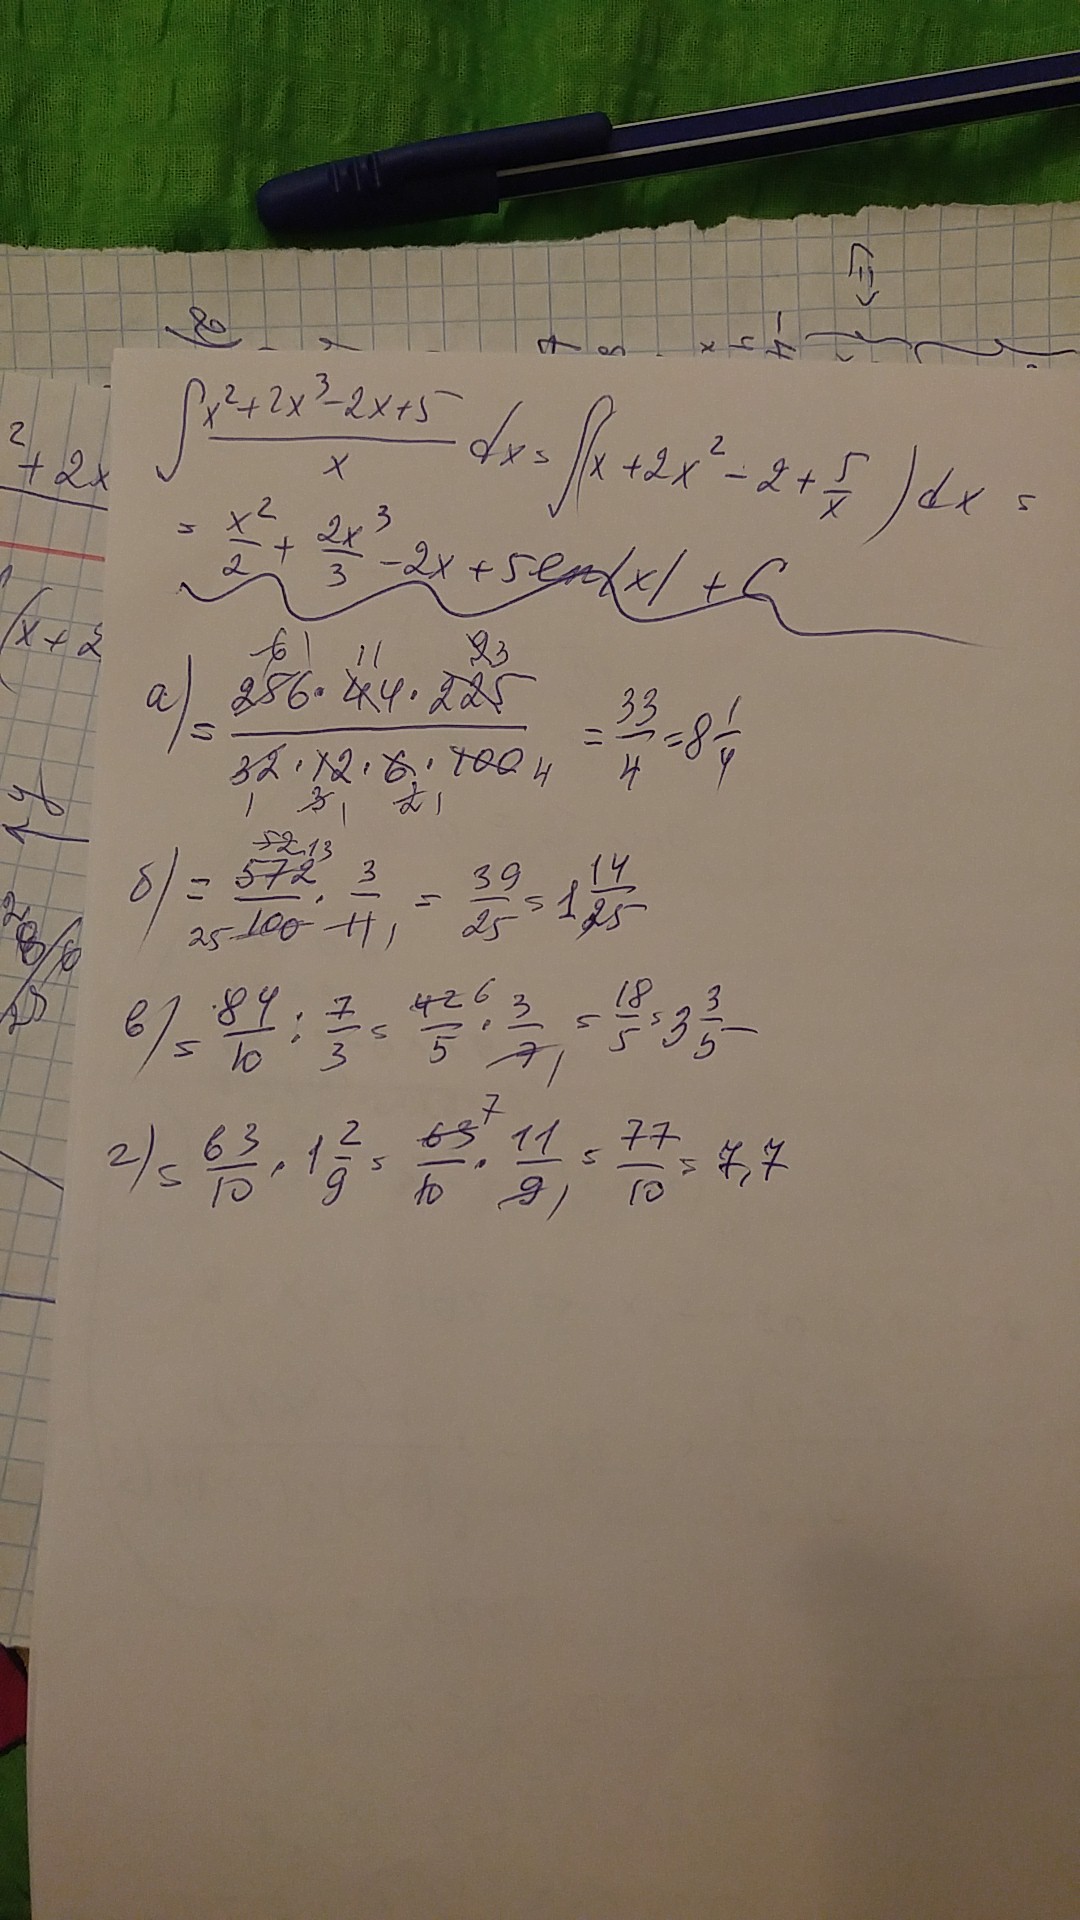 ∫ (x²+2x³-2x+5)/x dx = ∫(x+2x²-2+5/x)dx =
= x²/2 + 2x³/3 - 2x + 5 ln|x| + C
а) = (256·44·225)/(32·12·6·100) = 33/4 = 8 1/4
б) = 572/100 · 3/11 = 39/25 = 1 14/25
в) = 84/10 : 7/3 = 42/5 · 3/7 = 18/5 = 3 3/5
г) = 63/10 · 1 2/9 = 63/10 · 11/9 = 77/10 = 7,7
² + 2x
(x + 2